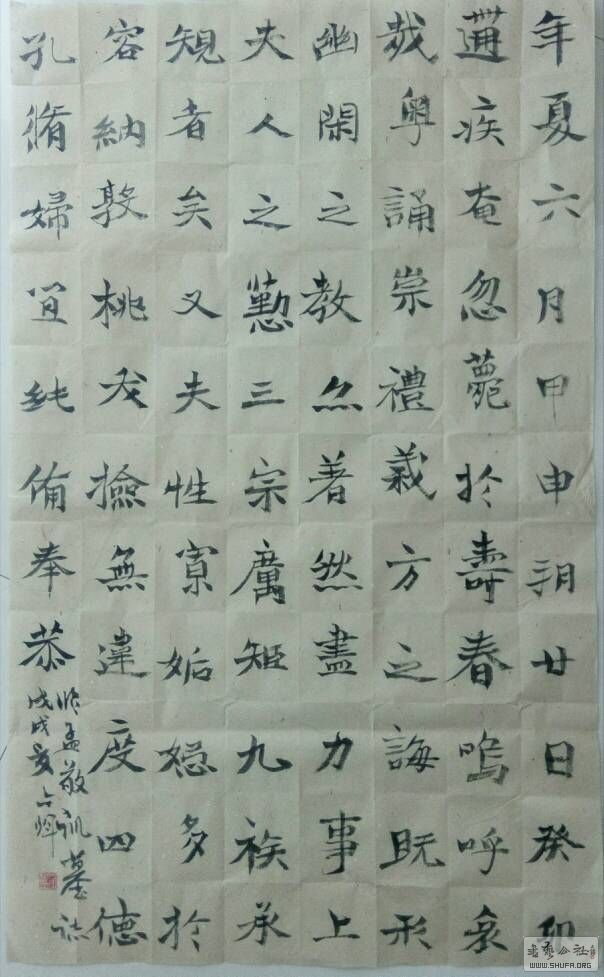 年夏六月甲申朔廿日癸卯
遘疾奄忽薨於壽春嗚呼哀
哉粵誦崇禮義方之誨既形
幽閑之教亦著然盡力事上
夫人之懃三宗厲矩九族承
規者矣又夫性寡妬多於
容納敦桃夭撿無違度四德
孔脩婦宜純備奉恭
臨孟敬訓墓誌
戊戌夏
WWW.SHUFA.ORG